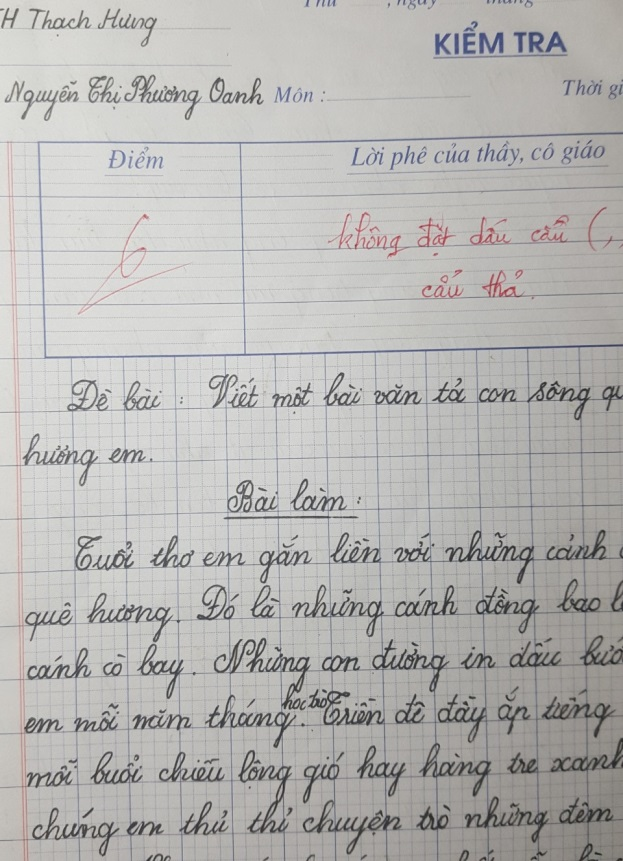 Thứ , ngày tháng
H Thạch Hưng
KIỂM TRA
Nguyễn Thị Phương Oanh Môn : Thời gi
Điểm Lời phê của thầy, cô giáo
6 không đặt dấu câu (,
cẩu thả.
Đề bài : Viết một bài văn tả con sông qu
hương em.
Bài làm :
Tuổi thơ em gắn liền với những cánh
quê hương. Đó là những cánh đồng bao l
cánh cò bay. Những con đường in dấu bướ
học trò
em mỗi năm tháng. Triền đê đầy ắp tiếng
mỗi buổi chiều lộng gió hay hàng tre xanh
chúng em thủ thỉ chuyện trò những đêm